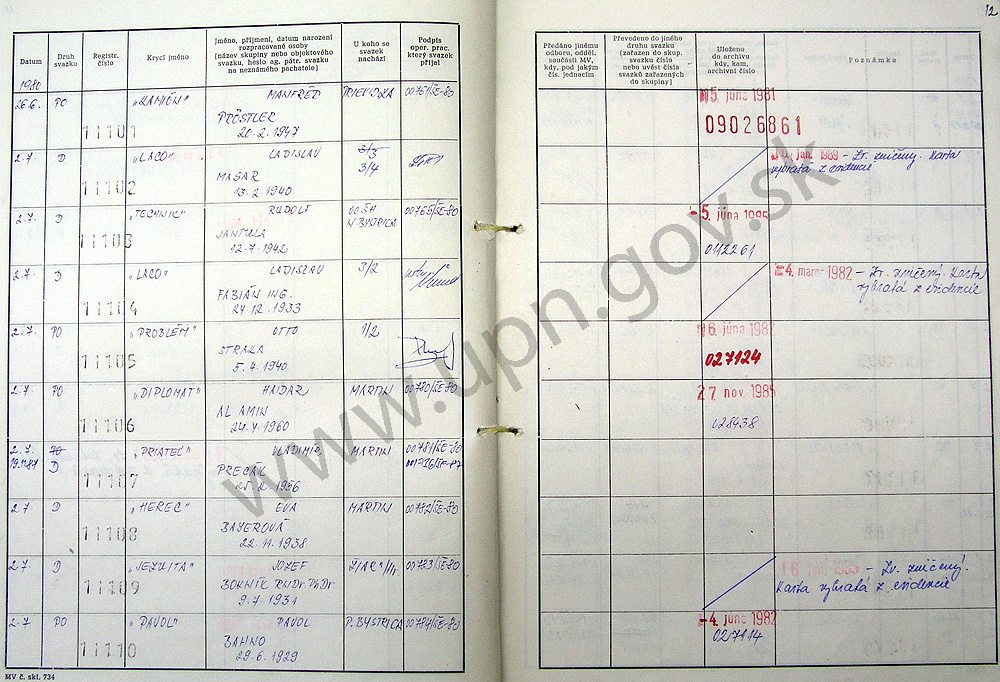 12
Datum
Druh svazku
Registr. číslo
Krycí jméno
Jméno, příjmení, datum narození
rozpracované osoby
(název skupiny nebo objektového
svazku, heslo ag. pátr. svazku
na neznámého pachatele)
U koho se
svazek
nachází
Podpis
oper. prac.
který svazek
přijal
Předáno jinému
odboru, odděl.
součásti MV,
kdy, pod jakým
čís. jednacím
Převedeno do jiného
druhu svazku
(zařazen do skup.
svazku číslo
nebo uvést čísla
svazků zařazených
do skupiny)
Uloženo
do archivu
kdy, kam,
archivní číslo
Poznámka
1980
26.6. PO 11101 „KAMIÓN" MANFRÉD PRIEVIDZA 00761/ŠE-80
PRÖSTLER
20.2.1947
5. júna 1981
09026861
2.7. D 11102 „LACO" LADISLAV 3/3
MASAR 3/4
13.2.1940
jan. 1989 – Zv. zničený. Karta
vybratá z evidencie
2.7. D 11103 „TECHNIK" RUDOLF 00765/ŠE-80
JANTULA
12.7.1942
5. júna
0112261
2.7. D 11104 „LACO" LADISLAV 3/2
FABIÁN ING.
24.12.1933
4. marec 1982 – Zv. zničený. Karta
vybratá z evidencie
2.7. PO 11105 „PROBLÉM" OTTO 1/2
STRAKA
5.4.1940
6. júna 1982
027124
2.7. PO 11106 „DIPLOMAT" HAIDAR MARTIN 00780/ŠE-80
AL AMIN
24.4.1960
27 nov. 1985
028438
2.7. PO 11107 „PRIATEĽ" VLADIMÍR MARTIN 00781/ŠE-80
D
PRECÁK
25.2.1956
2.7. D 11108 „HEREC" EVA MARTIN 00782/ŠE-80
BAYEROVÁ
22.11.1938
2.7. D 11109 „JEZUITA" JOZEF 00783/ŠE-80
RNDr. PhDr.
9.7.1931
– Zv. zničený.
Karta vybratá z evidencie
2.7 PO 11110 „PAVOL" PAVOL P. BYSTRICA 00784/ŠE-80
BAHNO
29.6.1929
4. júna 1982
027114
MV č. skl. 734
www.upn.gov.sk